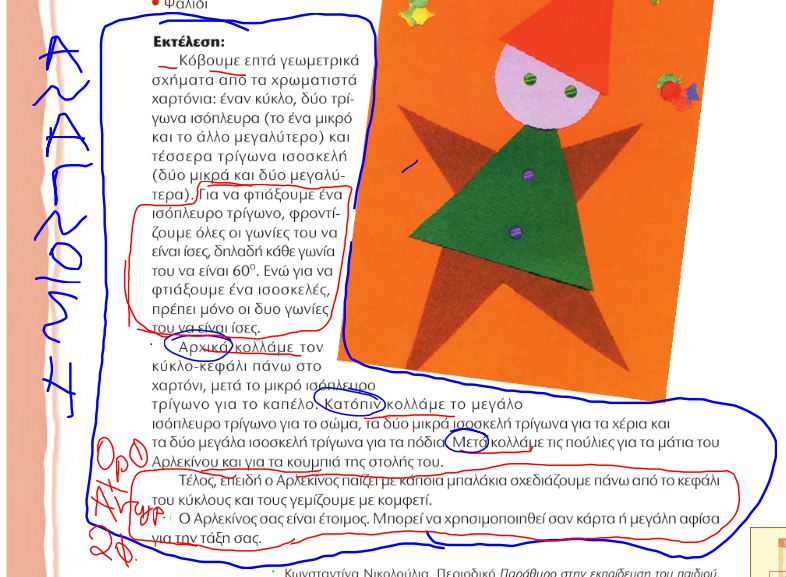 • Ψαλίδι
Εκτέλεση:
Κόβουμε επτά γεωμετρικά
σχήματα από τα χρωματιστά
χαρτόνια: έναν κύκλο, δύο τρί-
γωνα ισόπλευρα (το ένα μικρό
και το άλλο μεγαλύτερο) και
τέσσερα τρίγωνα ισοσκελή
(δύο μικρά και δύο μεγαλύ-
τερα). Για να φτιάξουμε ένα
ισόπλευρο τρίγωνο, φροντί-
ζουμε όλες οι γωνίες του να
είναι ίσες, δηλαδή κάθε γωνία
του να είναι 60°. Ενώ για να
φτιάξουμε ένα ισοσκελές,
πρέπει μόνο οι δυο γωνίες
του να είναι ίσες.
Αρχικά κολλάμε τον
κύκλο-κεφάλι πάνω στο
χαρτόνι, μετά το μικρό ισόπλευρο
τρίγωνο για το καπέλο. Κατόπιν κολλάμε το μεγάλο
ισόπλευρο τρίγωνο για το σώμα, τα δύο μικρά ισοσκελή τρίγωνα για τα χέρια και
τα δύο μεγάλα ισοσκελή τρίγωνα για τα πόδια. Μετά κολλάμε τις πούλιες για τα μάτια του
Αρλεκίνου και για τα κουμπιά της στολής του.
Τέλος, επειδή ο Αρλεκίνος παίζει με κάποια μπαλάκια σχεδιάζουμε πάνω από το κεφάλι
του κύκλους και τους γεμίζουμε με κομφετί.
Ο Αρλεκίνος σας είναι έτοιμος. Μπορεί να χρησιμοποιηθεί σαν κάρτα ή μεγάλη αφίσα
για την τάξη σας.
Κωνσταντίνα Νικολούλια, Περιοδικό Παράθυρο στην εκπαίδευση του παιδιού,